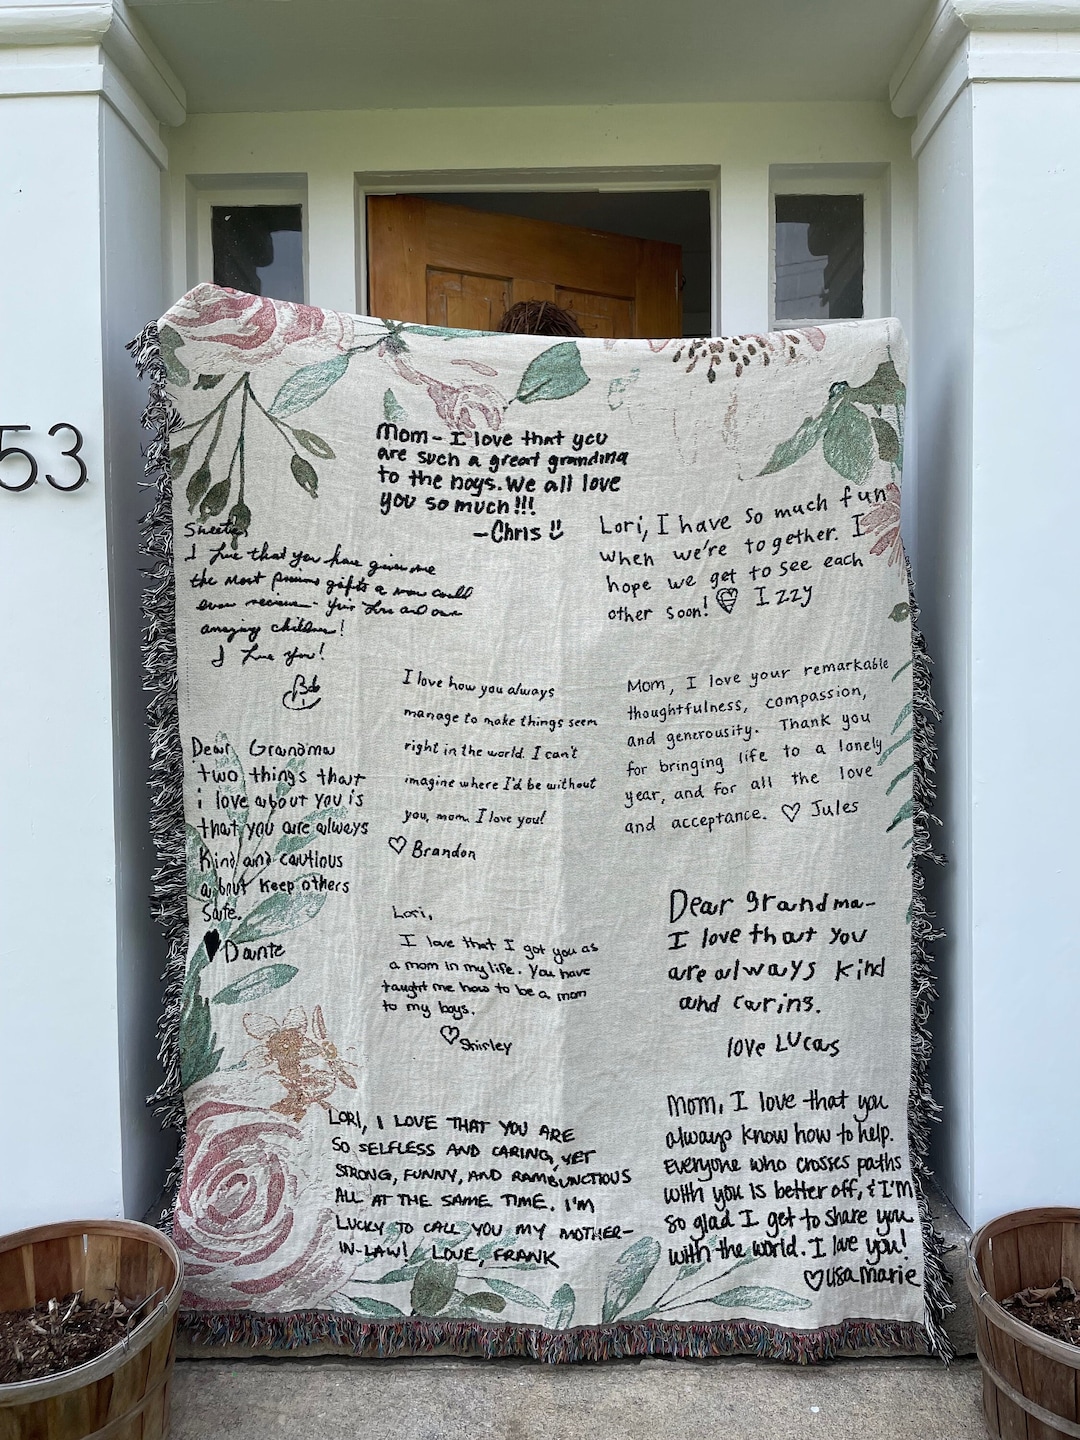 53
Mom- I love that you
are such a great grandma
to the boys. We all love
you so much!!!
-Chris
Sweetie,
I love that you have given me
the most precious gifts a man could
ever receive - your love and our
amazing children!
I love you!
Bob
Lori, I have so much fun
when we're together. I
hope we get to see each
other soon! Izzy
I love how you always
manage to make things seem
right in the world. I can't
imagine where I'd be without
you, mom. I love you!
♡ Brandon
Mom, I love your remarkable
thoughtfulness, compassion,
and generousity. Thank you
for bringing life to a lonely
year, and for all the love
and acceptance. ♡ Jules
Dear Grandma
two things that
i love about you is
that you are always
Kind and cautious
about keep others
safe.
♥ Dante
Lori,
I love that I got you as
a mom in my life. You have
taught me how to be a mom
to my boys.
♡ Shirley
Dear grandma-
I love that you
are always kind
and caring.
love Lucas
LORI, I LOVE THAT YOU ARE
SO SELFLESS AND CARING, YET
STRONG, FUNNY, AND RAMBUNCTIOUS
ALL AT THE SAME TIME. I'M
LUCKY TO CALL YOU MY MOTHER-
IN-LAW! LOVE, FRANK
Mom, I love that you
always know how to help.
Everyone who crosses paths
with you is better off, & I'm
so glad I get to share you
with the world. I love you!
♡ Lisa Marie